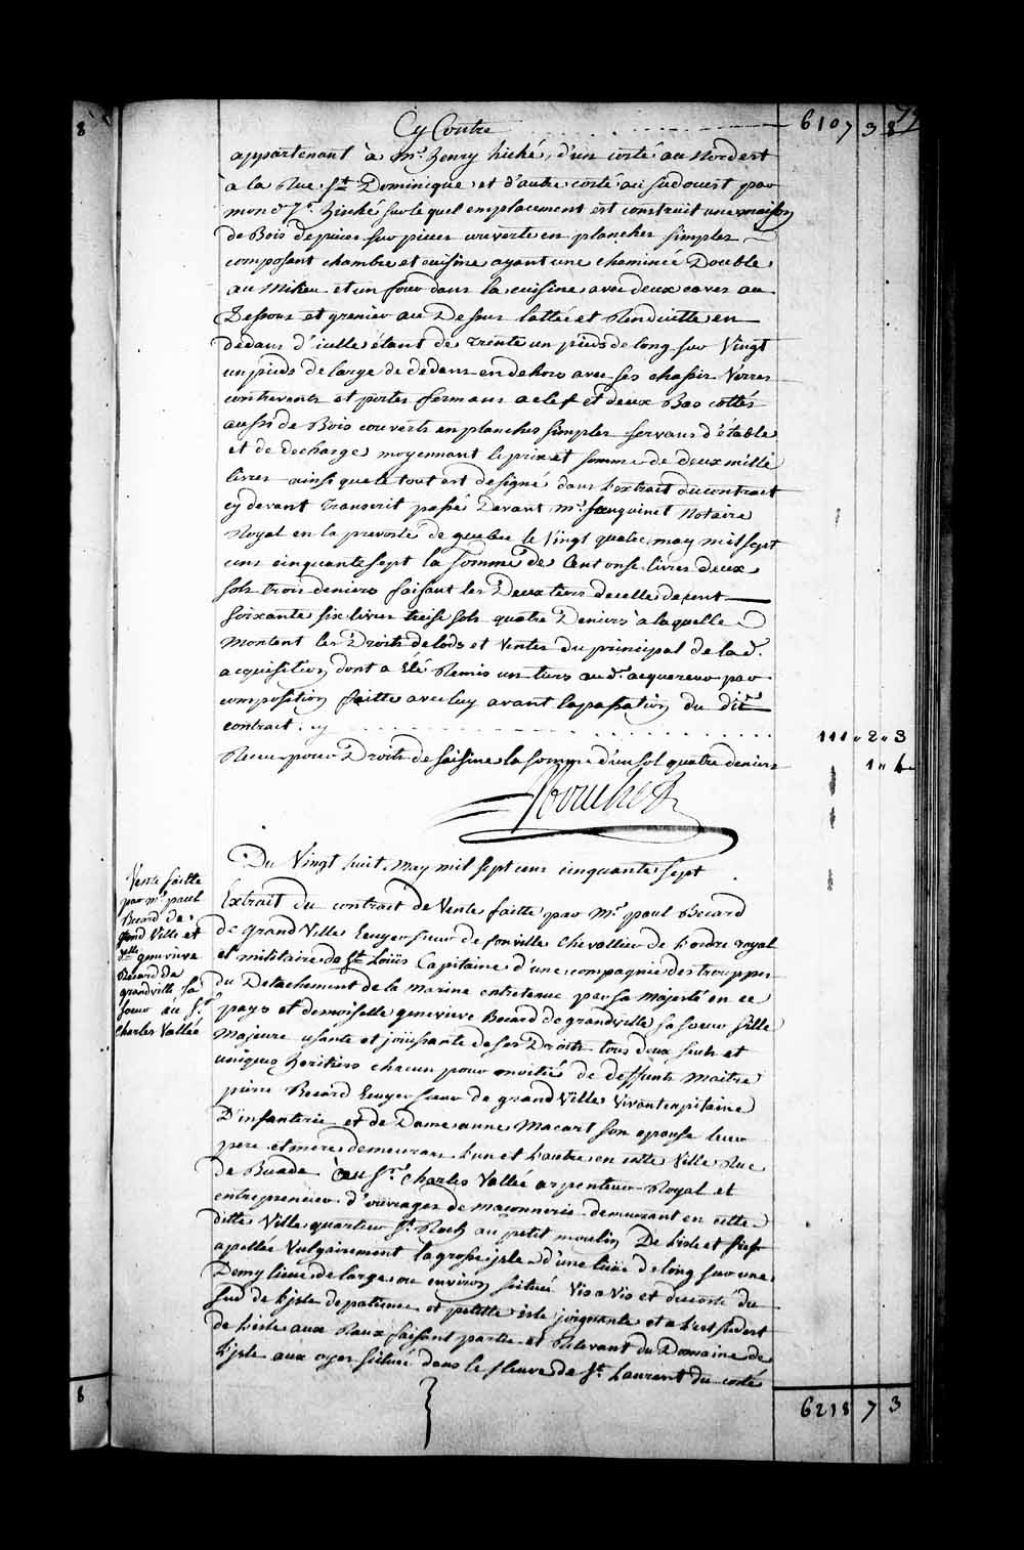 Cy Contre 6107 3 8
appartenant à Mr. henry hiché, d'un costé au Nordest
à la Rue St. Dominique et d'autre costé au sudouest par
mond. Sr. hiché sur lequel emplacement est construit une maison
de Bois de pieces sur pieces couverte en planches simples
composant chambre et cuisine ayant une cheminée Double
au Milieu et un four dans la cuisine avec deux caves au
Dessous et grenier au Dessus lattée et Renduitte en
dedans d'icelle étant de trente un pieds de long sur Vingt
un pieds de large de dedans en dehors avec ses chassis Verres
contrevents et portes fermans a clef et deux Bas cottés
aussi de Bois couverts en planches simples servans d'étable
et de decharge, moyennant le prix et somme de deux mille
livres ainsi que le tout est designé dans l'extrait du contract
cy devant transcrit passé Devant Mr. Sanguinet Notaire
Royal en la prevosté de quebec le Vingt quatre may mil sept
cens cinquante sept la somme de Cent onse livres deux
sols trois deniers faisant les Deux tiers de celle de cent
soixante six livres treise sols quatre Deniers à laquelle
montent les Droits de lods et Ventes du principal de lad.
acquisition dont a Eté Remis un tiers aud. acquereur par
composition faitte avec luy avant la passation du dit
contract. cy 111 " 2 " 3
Receu pour Droits de saisine la somme d'un sol quatre deniers 1 " 4
Boucher
Du Vingt huit May mil sept cens cinquante sept
Vente faitte
par Mr. paul
Becard de
grand Ville et
Delle genevieve
Becard De
grandville sa
soeur au Sr.
Charles Vallée
Extrait du contract de Vente faitte par Mr. paul Becard
de grand Ville Ecuyer sieur de fonville Chevallier de l'ordre royal
et militaire de St. Loüis Capitaine d'une compagnie des trouppes
du Detachement de la marine entretenue par sa Majesté en ce
pays et demoiselle genevieve Becard de grandville sa soeur fille
Majeure usante et joüissante de ses Droits tous deux seuls et
uniques heritiers chacun pour moitié de deffunts Maitre
pierre Becard Ecuyer sieur de grand Ville Vivant capitaine
D'infanterie et de Dame anne Macart son epouse leur
pere et mere demeurans l'un et l'autre en cette Ville Rue
de Buade au Sr. Charles Vallée arpenteur Royal et
entrepreneur d'ouvrages de maconnerie demeurant en cette
ditte Ville quartier St. Roch au petit moulin De l'isle et fief
apellée Vulgairement la grosse isle d'une lieüe de long sur une
Demy lieue de large ou environ scitué Vis a Vis et du costé du
sud de l'isle de patience et petitte isle joignante et a l'est sudest
de l'isle aux Raux faisant partie et Relevant du Domaine de
l'isle aux oyes scitué dans le fleuve de St. Laurent du costé
6218 7 3
8
8